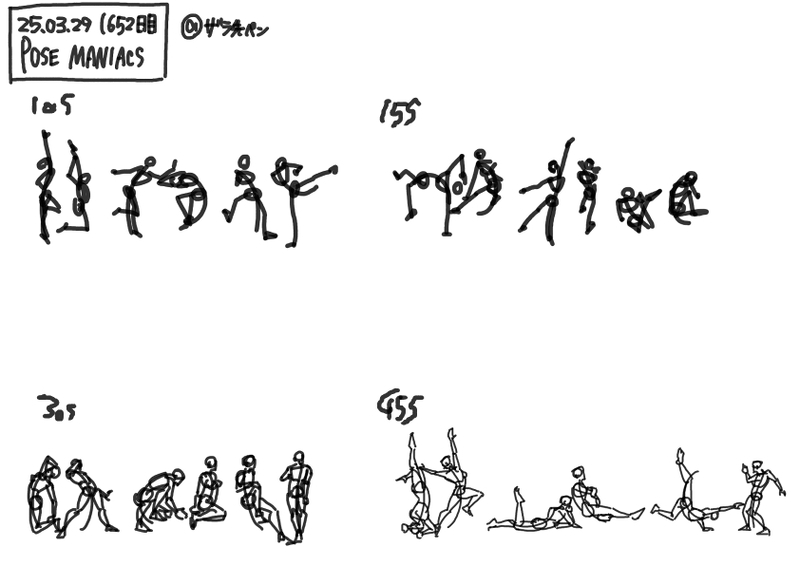 25.03.29 (652日目
POSE MANIACS
10s
15s
30s
45s